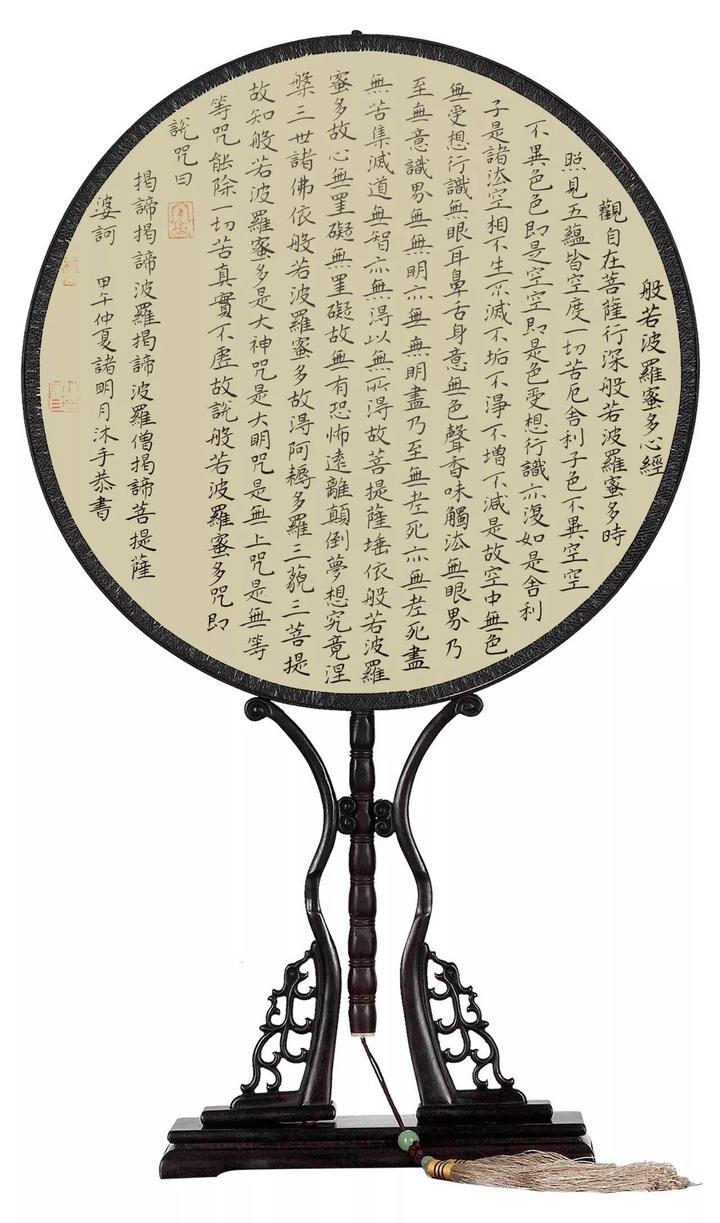 般若波羅蜜多心經
觀自在菩薩行深般若波羅蜜多時
照見五蘊皆空度一切苦厄舍利子色不異空空
不異色色即是空空即是色受想行識亦復如是舍利
子是諸法空相不生不滅不垢不淨不增不減是故空中無色
無受想行識無眼耳鼻舌身意無色聲香味觸法無眼界乃
至無意識界無無明亦無無明盡乃至無老死亦無老死盡
無苦集滅道無智亦無得以無所得故菩提薩埵依般若波羅
蜜多故心無罣礙無罣礙故無有恐怖遠離顛倒夢想究竟涅
槃三世諸佛依般若波羅蜜多故得阿耨多羅三藐三菩提
故知般若波羅蜜多是大神咒是大明咒是無上咒是無等
等咒能除一切苦真實不虛故說般若波羅蜜多咒即
說咒曰
揭諦揭諦波羅揭諦波羅僧揭諦菩提薩
婆訶 甲午仲夏諸明月沐手恭書